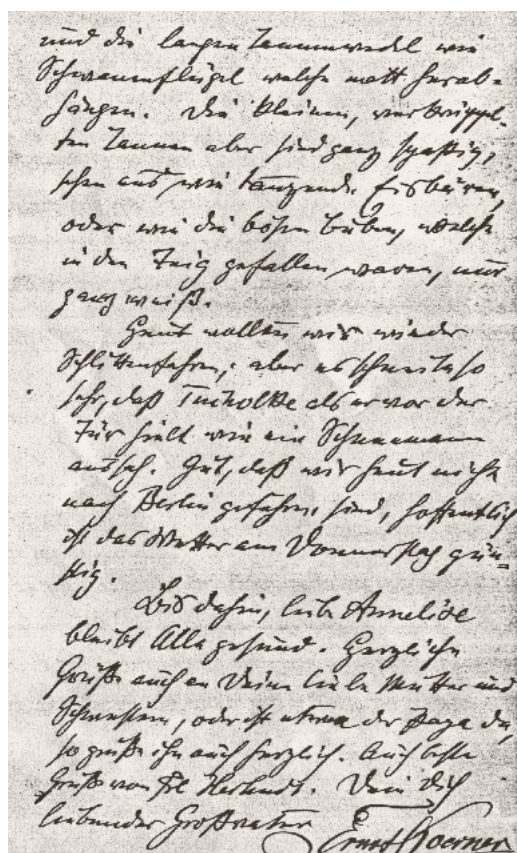 und die langen Tannenwedel wie
Schwanenflügel welche matt herab-
hängen. Die kleinen, verkrüppel-
ten Tannen aber sind ganz spaßig,
sehen aus wie tanzende Eisbären,
oder wie die bösen Buben, welche
in den Teig gefallen waren, nur
ganz weiß.
Heut wollten wir wieder
Schlittenfahren, aber es schneite so
sehr, daß Tucholke als er vor der
Tür hielt wie ein Schneemann
aussah. Gut, daß wir heut nicht
nach Berlin gefahren sind, hoffentlich
ist das Wetter am Donnerstag gün-
stig.
Bis dahin, liebe Anneliese
bleibt Alle gesund. Herzliche
Grüße auch an Deine liebe Mutter und
Schwestern, oder ist etwa der Papa da,
so grüße ihn auch herzlich. Auch beste
Grüße von Frl. Dein Dich
liebender Großvater
Ernst Koerner